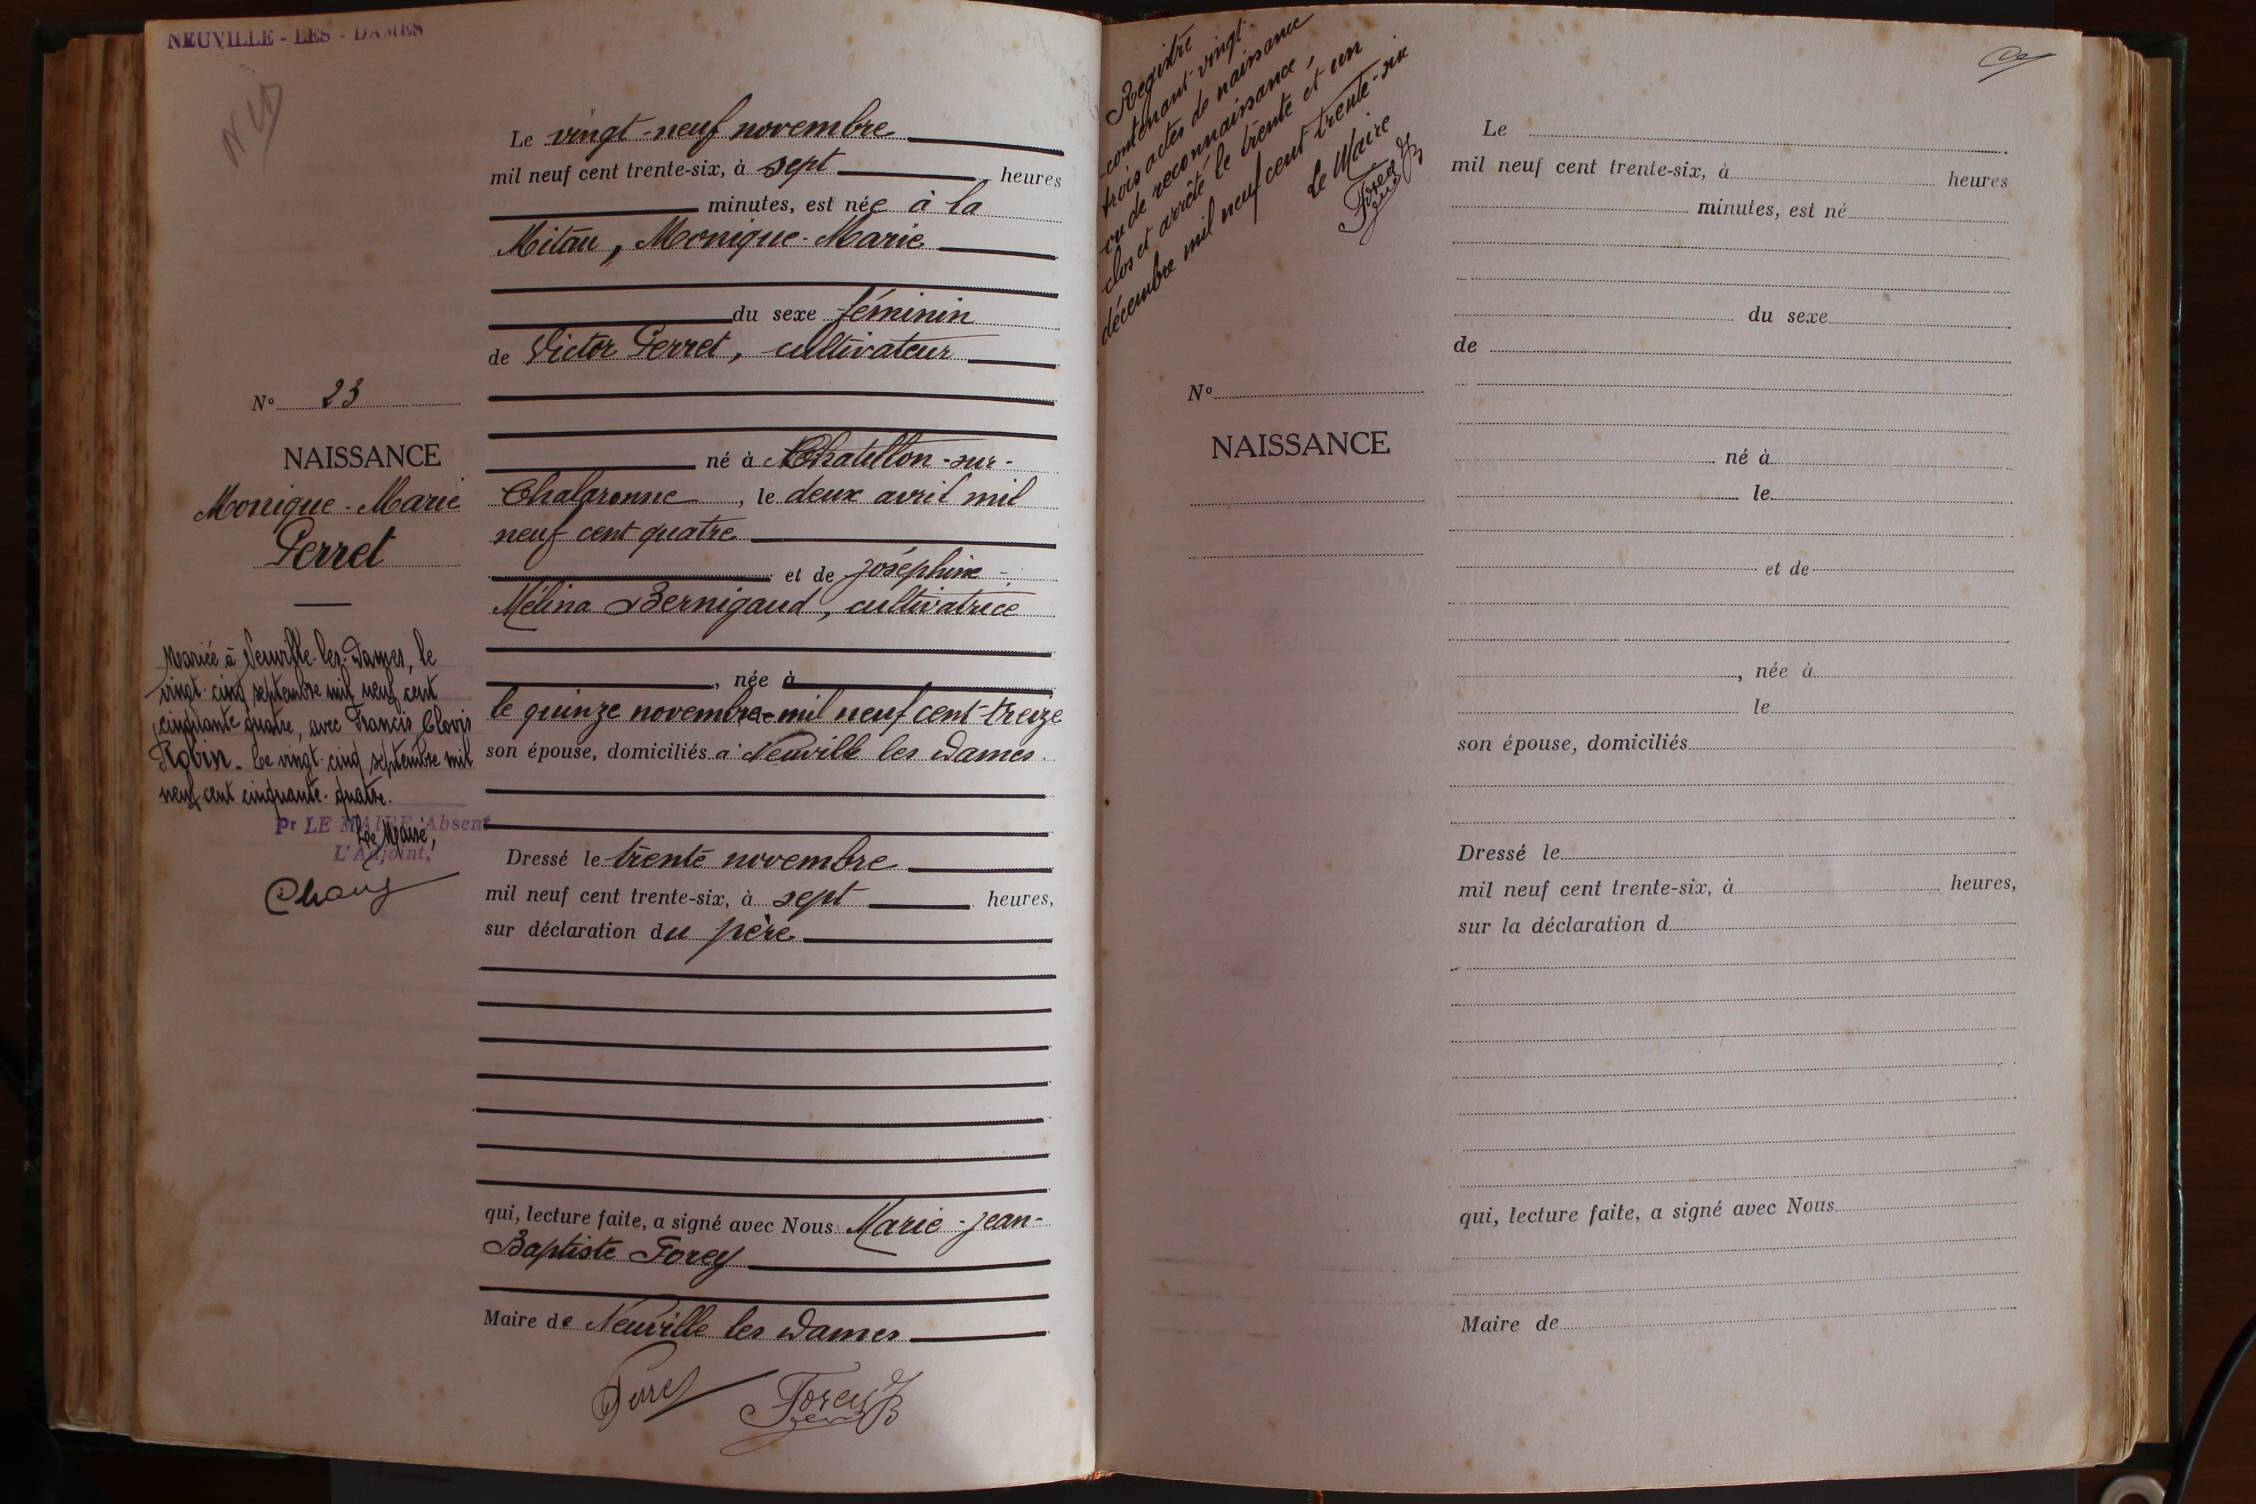 NEUVILLE - LES - DAMES
NLD
Le vingt-neuf novembre
mil neuf cent trente-six, à sept heures
minutes, est née à la
Mitau, Monique-Marie
du sexe féminin
de Victor Perret, cultivateur
né à Chatillon-sur-
Chalaronne, le deux avril mil
neuf cent quatre
et de Joséphine-
Mélina Bernigaud, cultivatrice
, née à
le quinze novembre mil neuf cent-treize
son épouse, domiciliés à Neuville les Dames
Dressé le trente novembre
mil neuf cent trente-six, à sept heures,
sur déclaration du père
qui, lecture faite, a signé avec Nous Marie-Jean-
Baptiste Forey
Maire de Neuville les Dames
Perret
Forey JB
N° 23
NAISSANCE
Monique-Marie
Perret
Mariée à Neuville-les-Dames, le
vingt-cinq septembre mil neuf cent
cinquante quatre, avec Francis Clovis
Robin. Le vingt-cinq septembre mil
neuf cent cinquante-quatre.
Pr LE MAIRE Absent
Le Maire,
L'Adjoint,
Registre
contenant vingt-
trois actes de naissance
ou de reconnaissance,
clos et arrêté le trente et un
décembre mil neuf cent trente-six
Le Maire
Forey JB
N°
NAISSANCE
Le
mil neuf cent trente-six, à heures
minutes, est né
du sexe
de
né à
le
et de
, née à
le
son épouse, domiciliés
Dressé le
mil neuf cent trente-six, à heures,
sur la déclaration d
qui, lecture faite, a signé avec Nous
Maire de